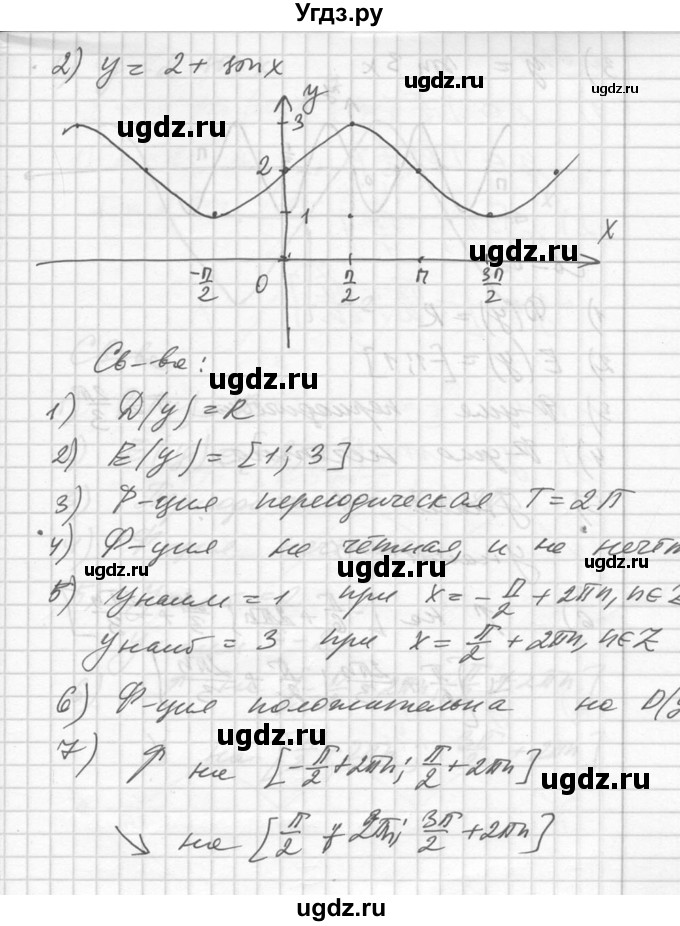 Угдз.ру
2) y = 2 + sin x
ugdz.ru
ugdz.ru
ugdz.ru
y
3
2
1
ugdz.ru
x
-π/2 0 π/2 π 3π/2
Св-ва:
ugdz.ru
1) D(y) = R
2) E(y) = [1; 3]
ugdz.ru
3) Ф-ция периодическая T = 2π
4) Ф-ция не чётная, и не нечёт
ugdz.ru
ugdz.ru
ugdz.ru
5) yнаим = 1 при x = -π/2 + 2πn, n∈Z
yнаиб = 3 при x = π/2 + 2πn, n∈Z
6) Ф-ция положительна на D(y
ugdz.ru
7) ↗ на [-π/2 + 2πn; π/2 + 2πn]
ugdz.ru
↘ на [π/2 + 2πn; 3π/2 + 2πn]
ugdz.ru
ugdz.ru